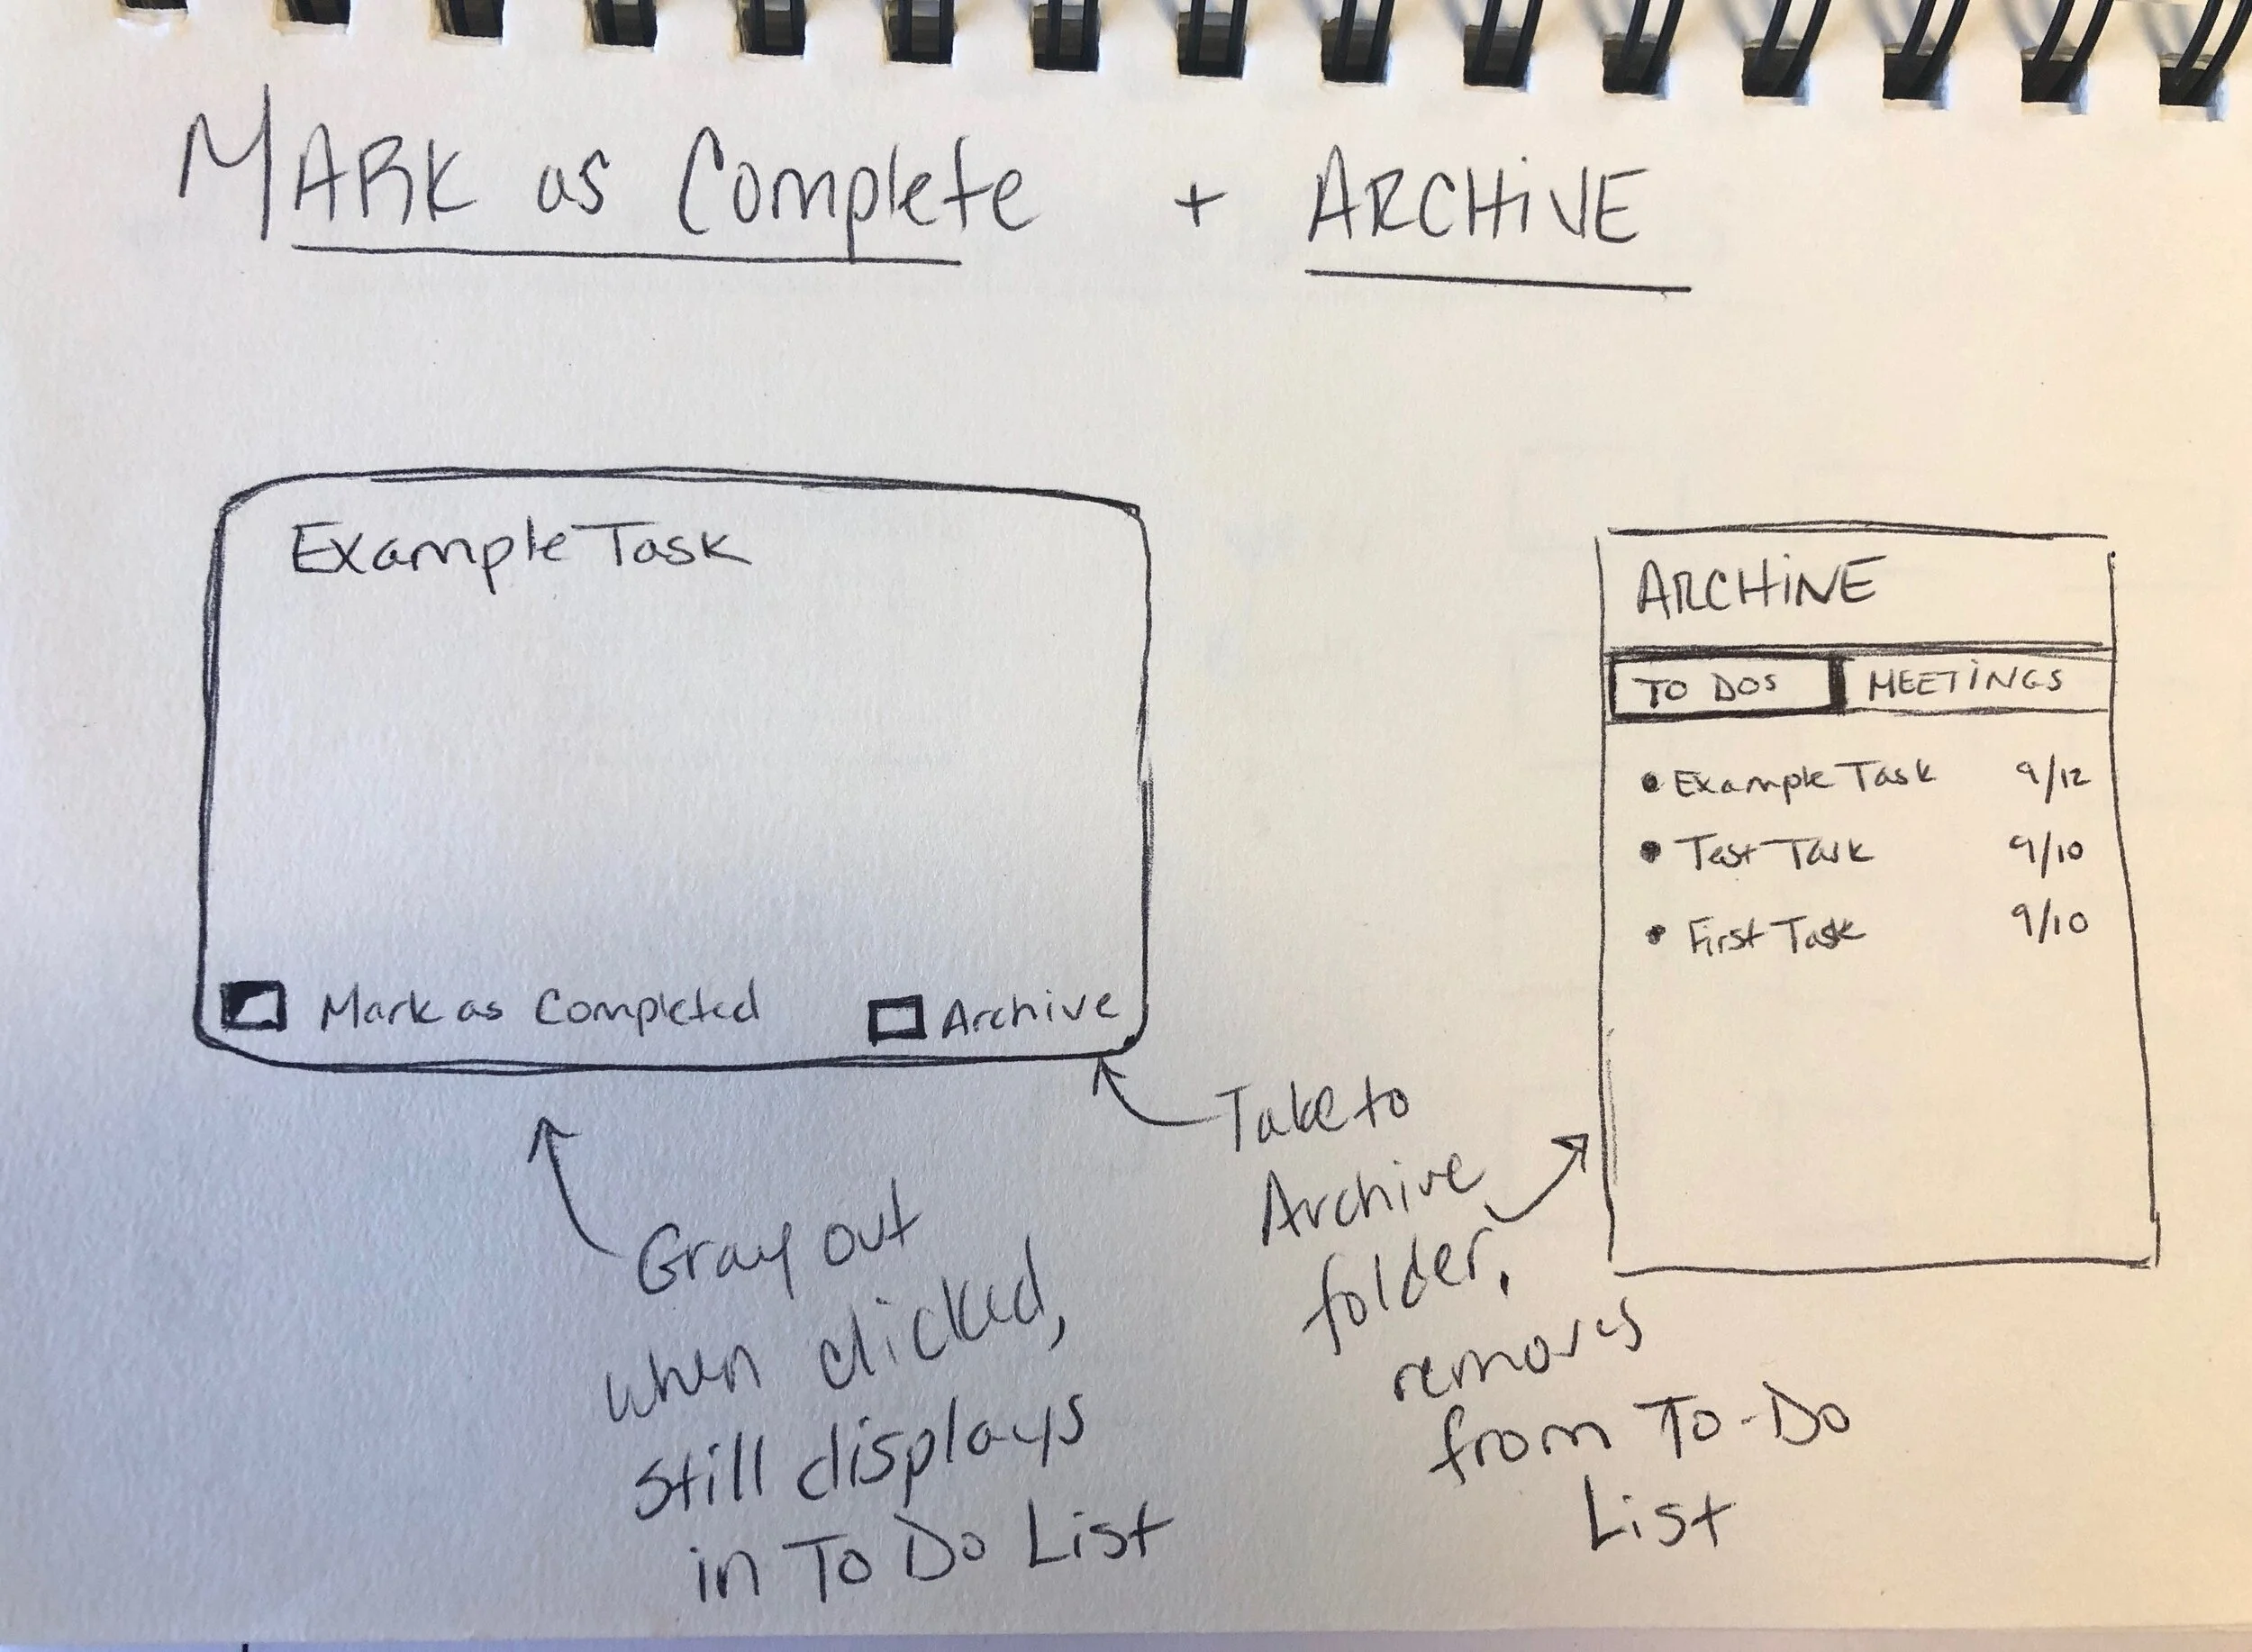 MARK as Complete + ARCHiVE
Example Task
Mark as Completed
Archive
Gray out
when clicked,
still displays
in To Do List
Take to
Archive
folder,
removes
from To-Do
List
ARCHiVE
TO DOS
MEETiNGS
• Example Task 9/12
• Test Task 9/10
• First Task 9/10